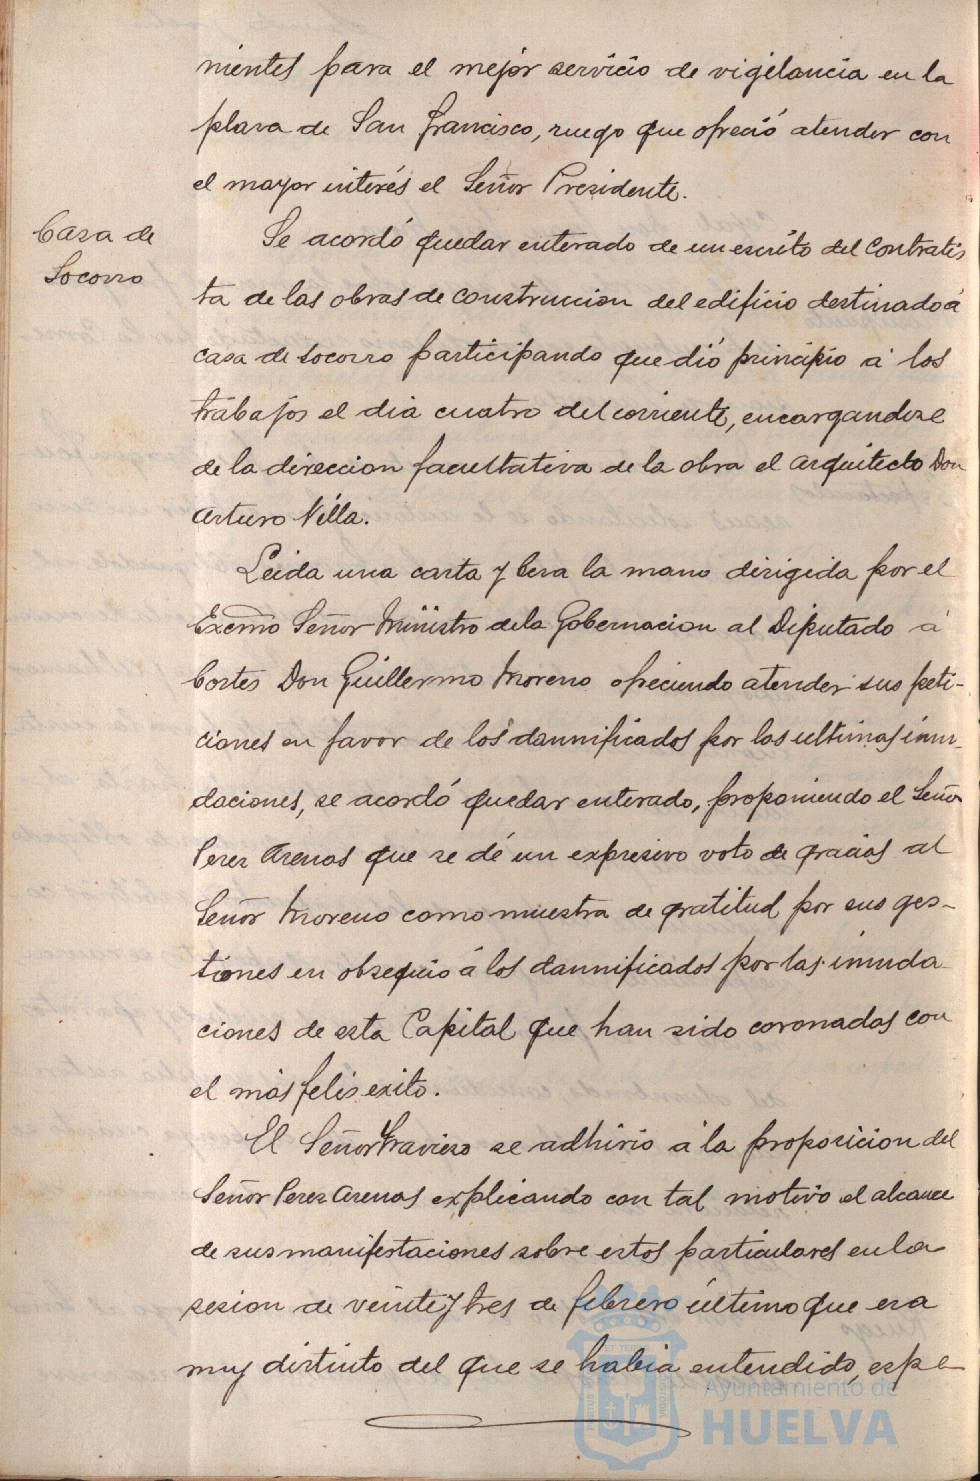 nientes para el mejor servicio de vigilancia en la
plaza de San Francisco, ruego que ofreció atender con
el mayor interés el Señor Presidente.
Casa de
Socorro
Se acordó quedar enterado de un escrito del contratis
ta de las obras de construccion del edificio destinado á
casa de socorro participando que dió principio á los
trabajos el dia cuatro del corriente, encargandose
de la direccion facultativa de la obra el arquitecto Don
Arturo Villa.
Leida una carta y besa la mano dirigida por el
Excmo Señor Ministro de la Gobernacion al Diputado á
Cortes Don Guillermo Moreno ofreciendo atender sus peti-
ciones en favor de los damnificados por las ultimas inun-
daciones, se acordó quedar enterado, proponiendo el Señor
Perez Arenas que se dé un expresivo voto de gracias al
Señor Moreno como muestra de gratitud por sus ges-
tiones en obsequio á los damnificados por las inunda-
ciones de esta Capital que han sido coronadas con
el más felis exito.
El Señor Travieso se adhirió á la proposicion del
Señor Perez Arenas explicando con tal motivo el alcance
de sus manifestaciones sobre estos particulares en la
sesion de veinte y tres de febrero último que era
muy distinto del que se habia entendido, espe
Ayuntamiento de
HUELVA